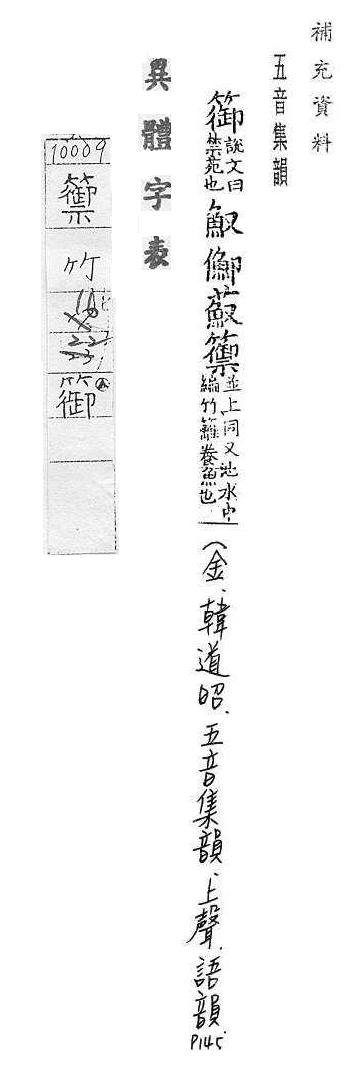 補充資料
五音集韻
篽說文曰禁苑也䱷𩵎𦽏籞並上同又池水中編竹籬養魚也
（金．韓道昭．五音集韻．上聲．語韻 P145
異體字表
10009
籞
竹
篽